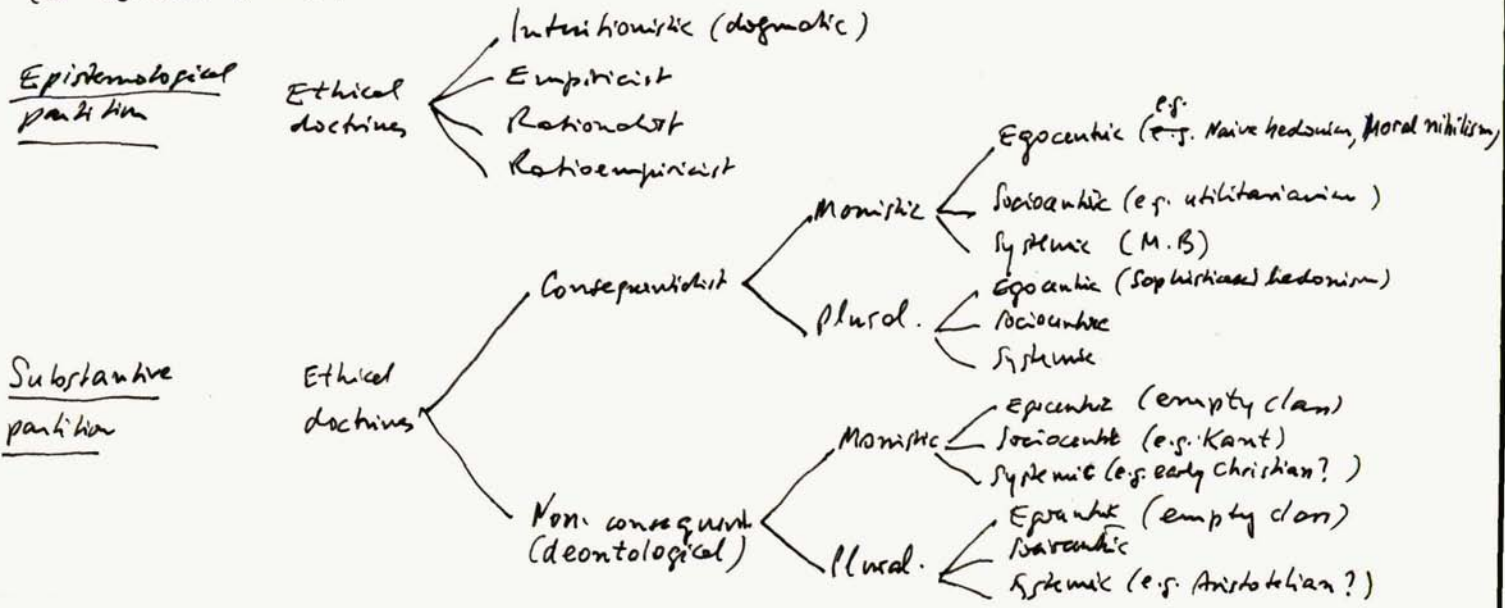 Epistemological
partition
Ethical
doctrines
Intuitionistic (dogmatic)
Empiricist
Rationalist
Ratioempiricist
Substantive
partition
Ethical
doctrines
Consequentialist
Monistic
e.g.
Egocentric (e.g. Naive hedonism, Moral nihilism)
Sociocentric (e.g. utilitarianism)
Systemic (M.B)
Plural.
Egocentric (Sophisticated hedonism)
Sociocentric
Systemic
Non-consequent.
(deontological)
Monistic
Egocentric (empty class)
Sociocentric (e.g. Kant)
Systemic (e.g. early Christian?)
Plural.
Egocentric (empty class)
Sociocentric
Systemic (e.g. Aristotelian?)